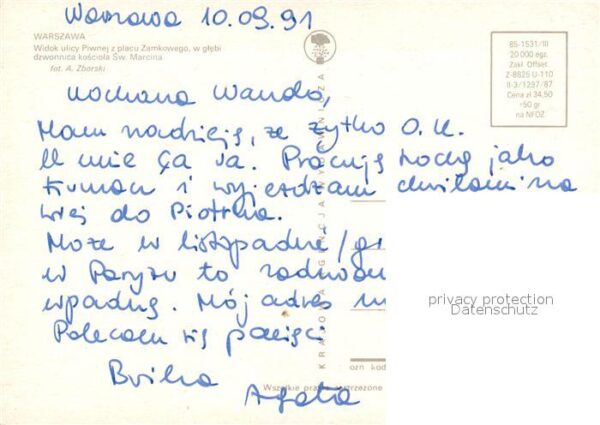 Warszawa 10.09.91
WARSZAWA
Widok ulicy Piwnej z placu Zamkowego, w głębi
dzwonnica kościoła Św. Marcina
fot. A. Zborski
85-1531/III
20 000 egz.
Zakł. Offset.
Z-8825 U-110
II-3/1297/87
Cena zł 34,50
+50 gr
na NFOZ
Kochana Wando,
Mam nadzieję, że żytko O.K.
U mnie ça va. Pracuję trochę jako
tłumacz i wyjeżdżam chwilami na
wieś do Piotrka.
Może w listopadzie/gr
w Paryżu to
wpadnę. Mój adres
Polecam się pamięci
Agata
KRAJOWA AGENCJA WYDAWNICZA
ozn kod
Wszystkie prawa zastrzeżone
privacy protection
Datenschutz